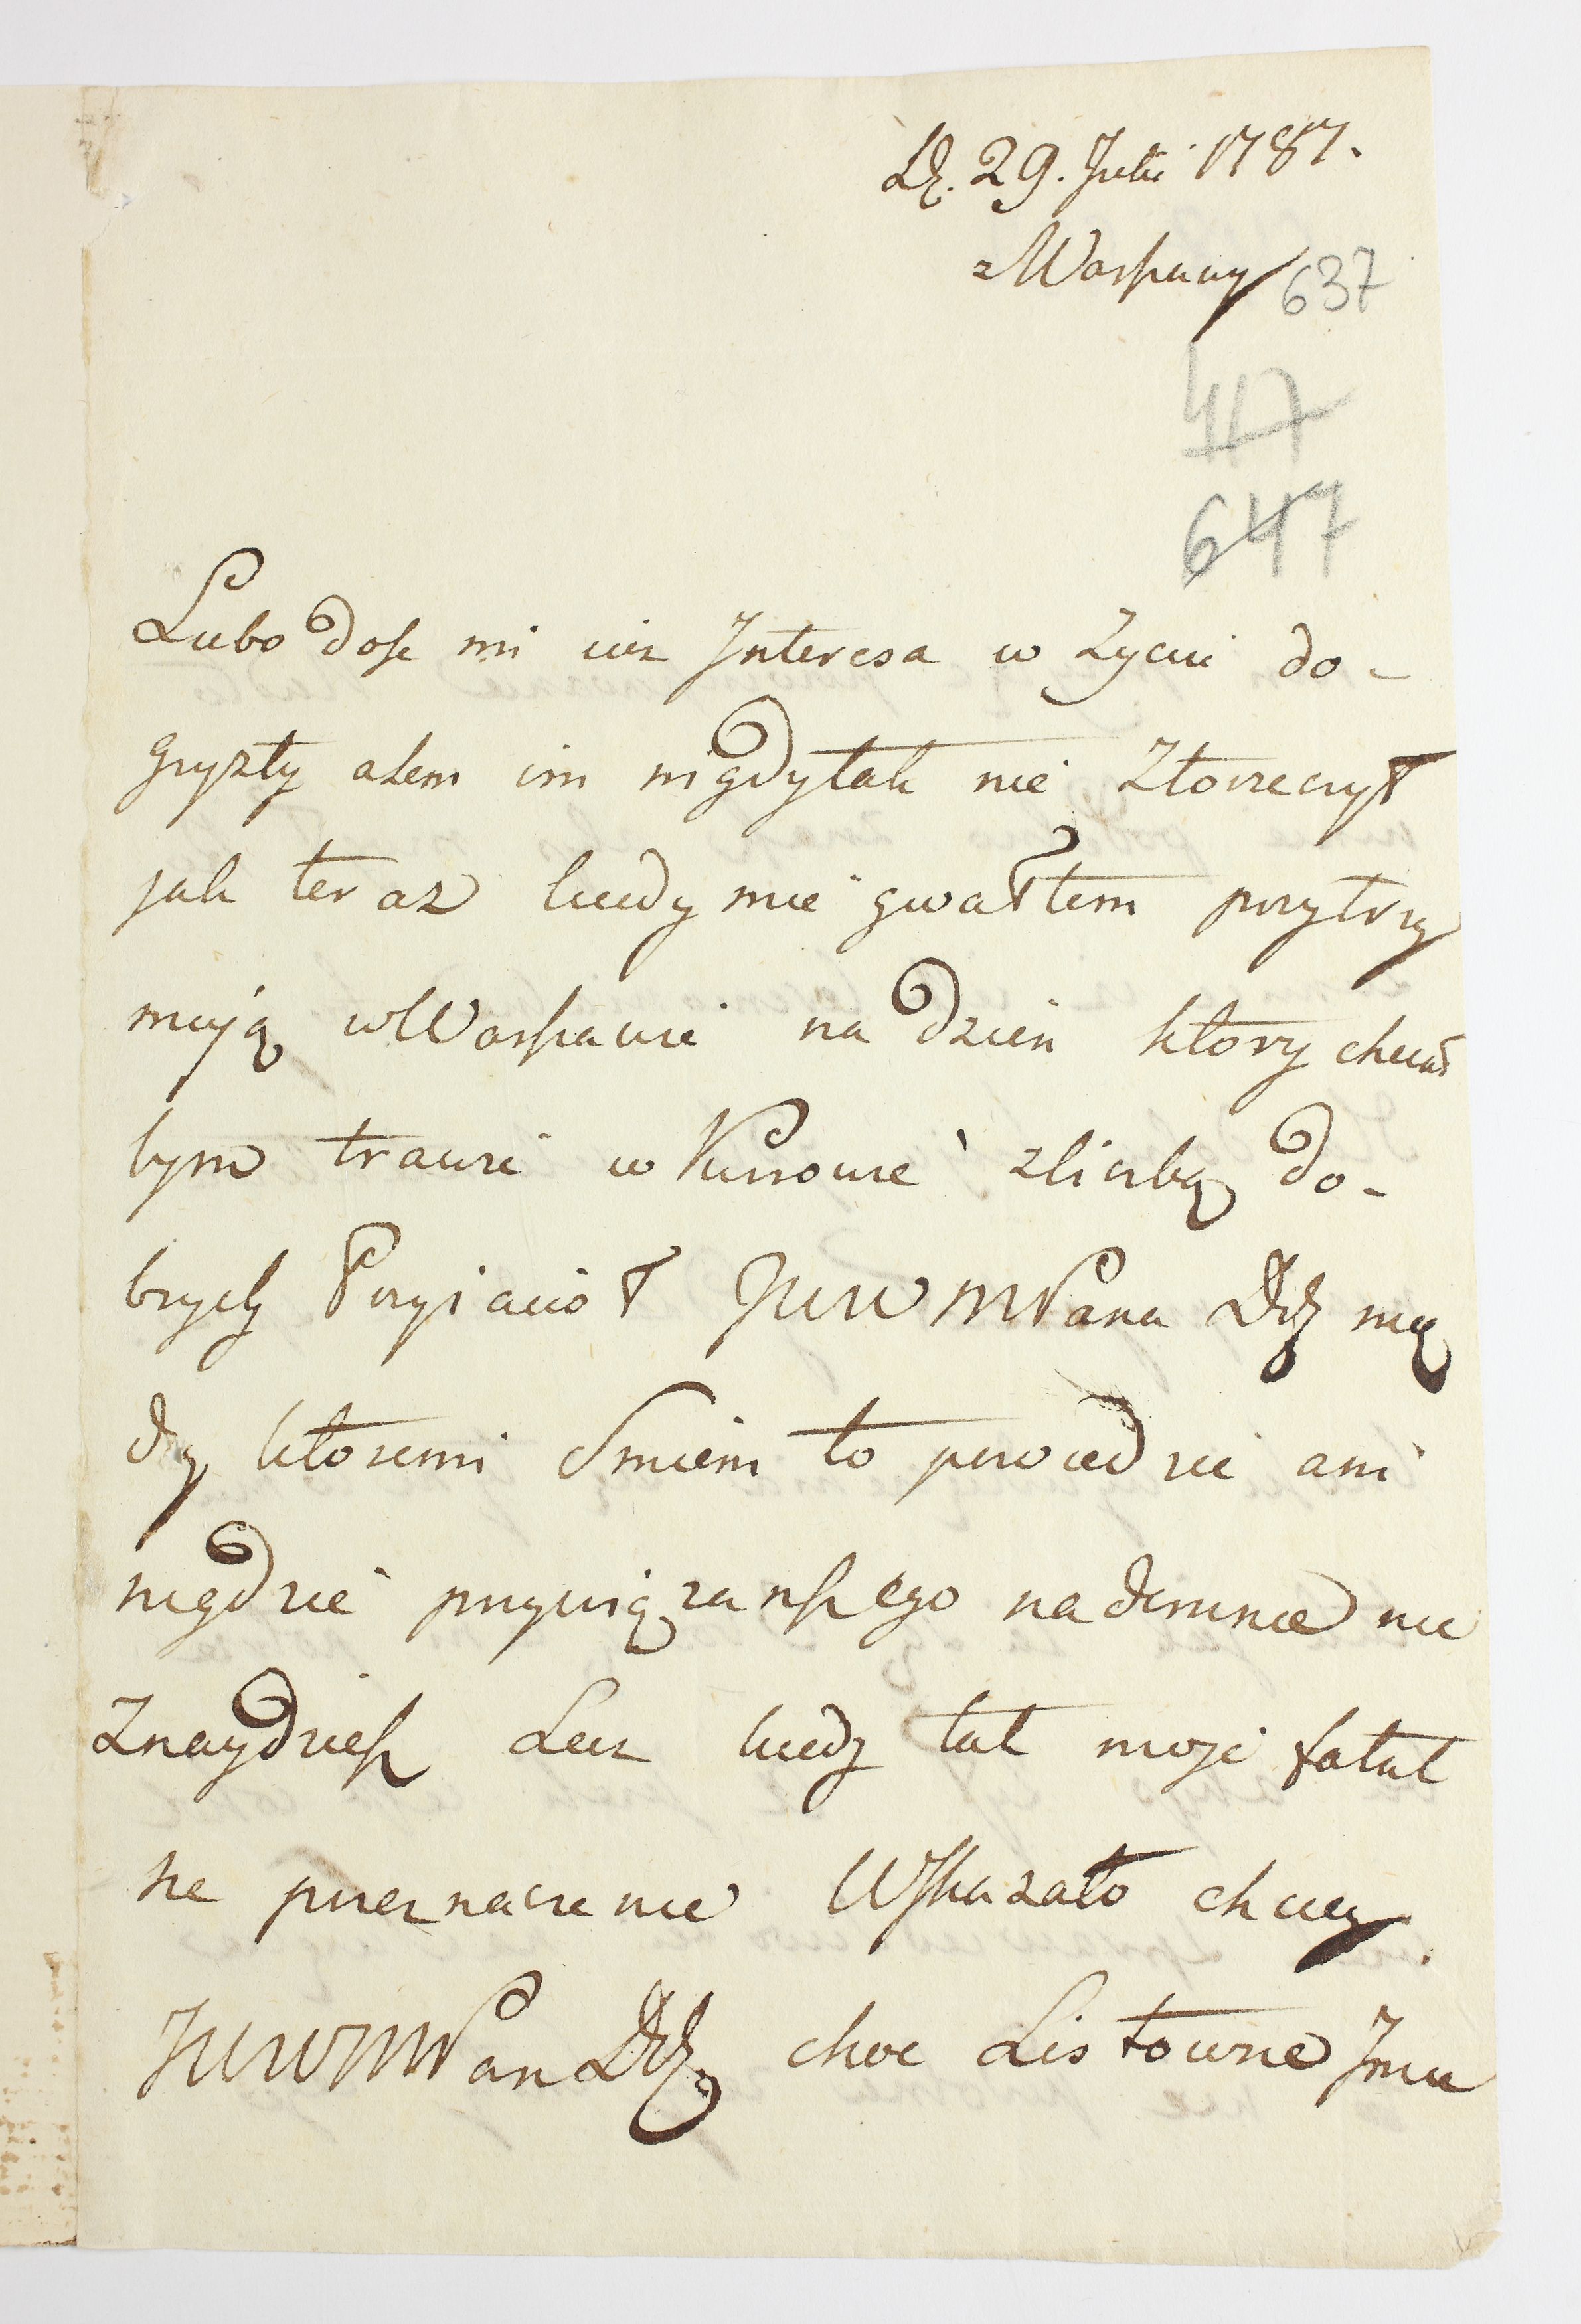 D. 29. Julii 1787.
z Warszawy 637
417
647
Lubo dość mi iuz Interesa w Zyciu do-
gryzły alem im nigdy tak nie Złorzeczył
jak teraz kiedy mie gwałtem przytrzy
mują w Warszawie na dzien ktory chciał
bym trawic w Kurowie z liczbą do-
brych Przyiacioł JWW MPana Dzg mię
dzy ktoremi Smiem to powiedziec ani
nigdzie przywiązanszego nademnie nie
Znaydziesz Lecz kiedy tak moje fatal
ne przeznaczenie Wskazało chciey
JWWMPan Dzg choc Listowne Jmie